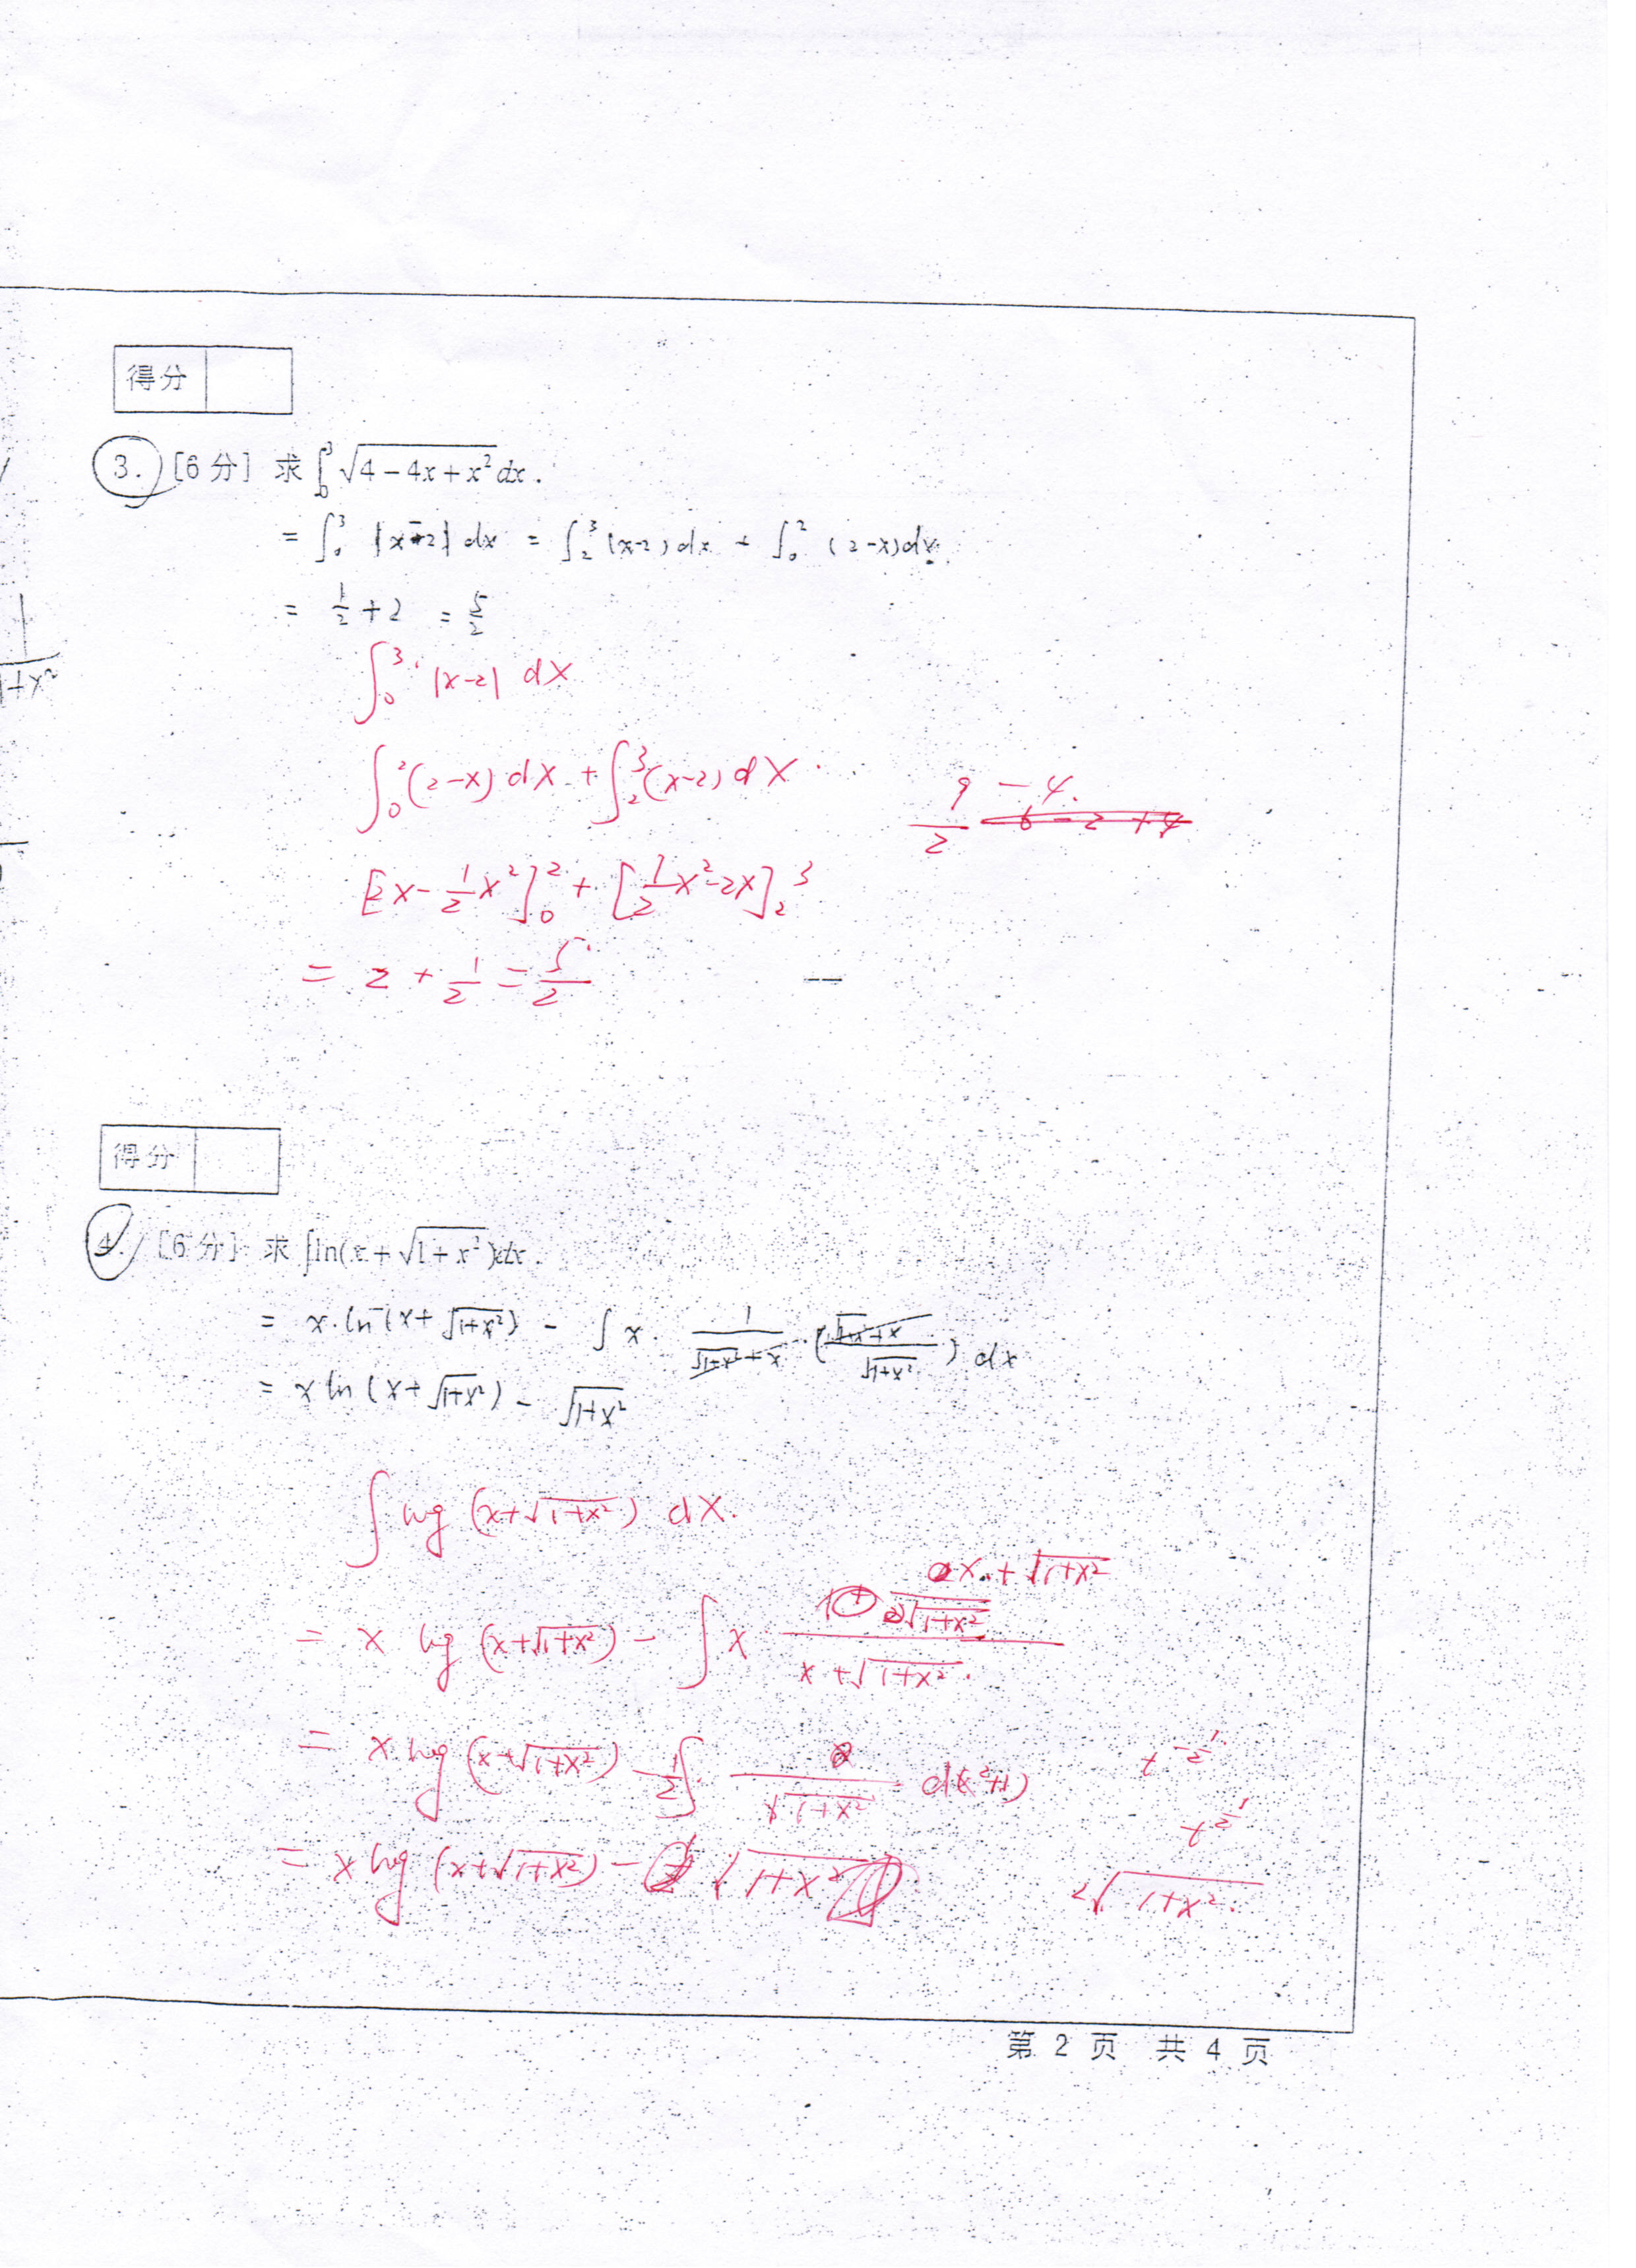 得分
3. [6分] 求 ∫₀³ √(4-4x+x²) dx.
= ∫₀³ |x-2| dx = ∫₂³ (x-2) dx + ∫₀² (2-x) dx
= 1/2 + 2 = 5/2
∫₀³ |x-2| dx
∫₀² (2-x) dx + ∫₂³ (x-2) dx
9/2 - 4.
[2x - 1/2 x²]₀² + [1/2 x² - 2x]₂³
= 2 + 1/2 = 5/2
1+x²
得分
4. [6分] 求 ∫ln(x+√(1+x²))dx.
= x·ln(x+√(1+x²)) - ∫ x· 1/(√(1+x²)+x) · ((√(1+x²)+x)/√(1+x²)) dx
= x ln(x+√(1+x²)) - √(1+x²)
∫ log (x+√(1+x²)) dx.
= x log (x+√(1+x²)) - ∫ x ((x+√(1+x²))/√(1+x²))/(x+√(1+x²))
= x log (x+√(1+x²)) - 1/2 ∫ 1/√(1+x²) d(x²+1)
t^(-1/2)
t^(1/2)
= x log (x+√(1+x²)) - √(1+x²)
2√(1+x²).
第 2 页 共 4 页